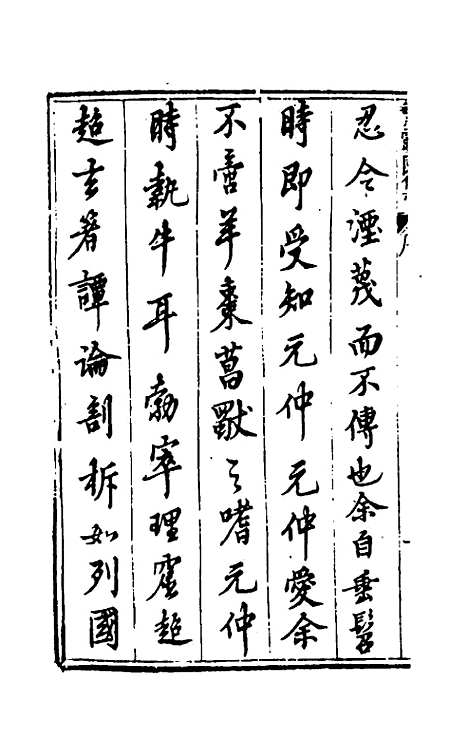 忍令湮蔑而不傳也余自垂髫
時即受知元仲元仲愛余
不啻羊棗菖歜之嗜元仲
時執牛耳勃窣理窟超
超玄箸譚論剖析如列國